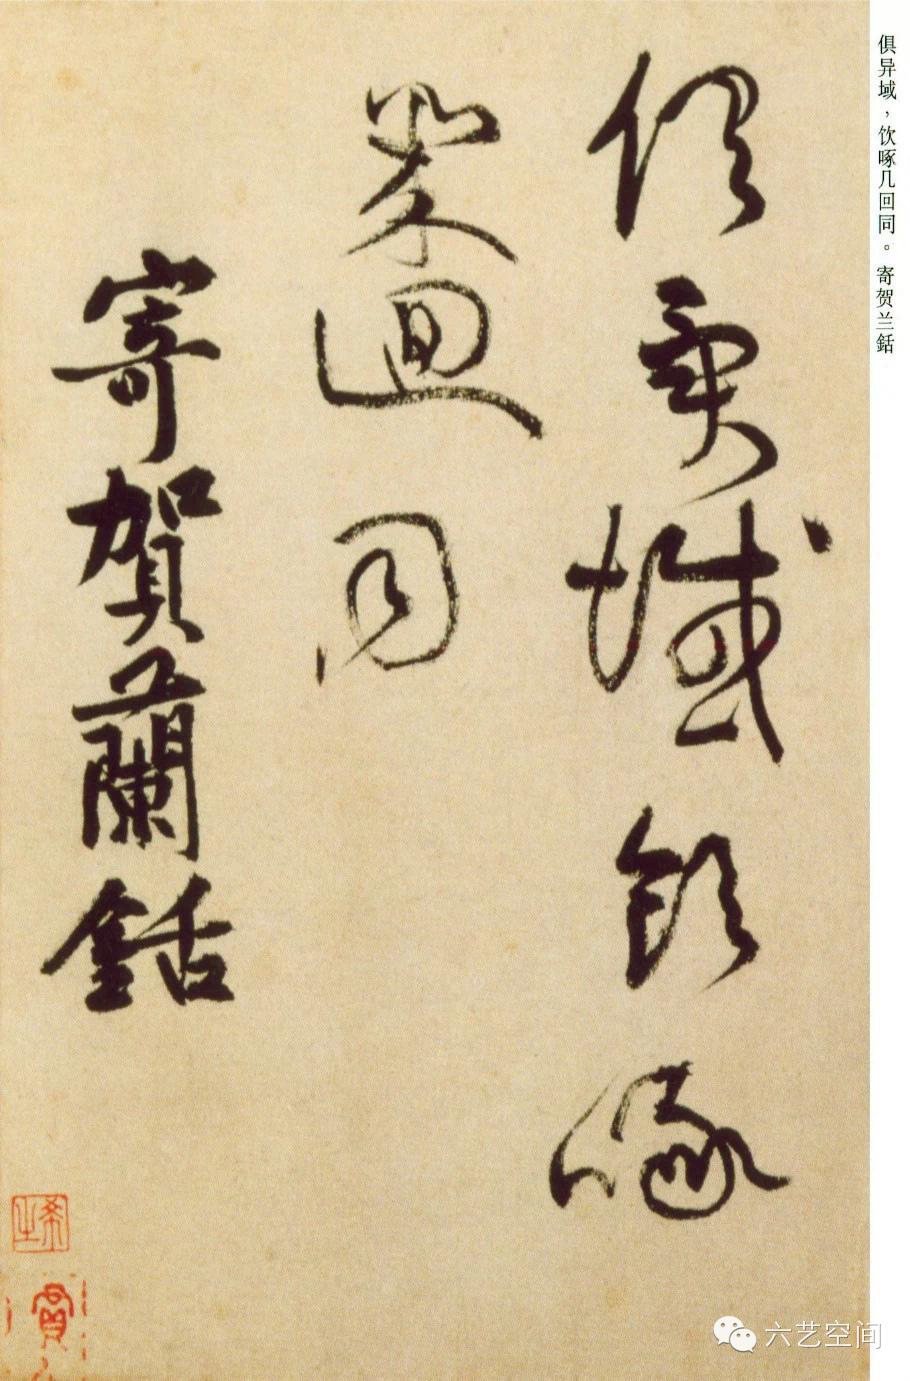 俱異域飲啄
幾迴同
寄賀蘭銛
俱异域，饮啄几回同。寄贺兰銛
六艺空间